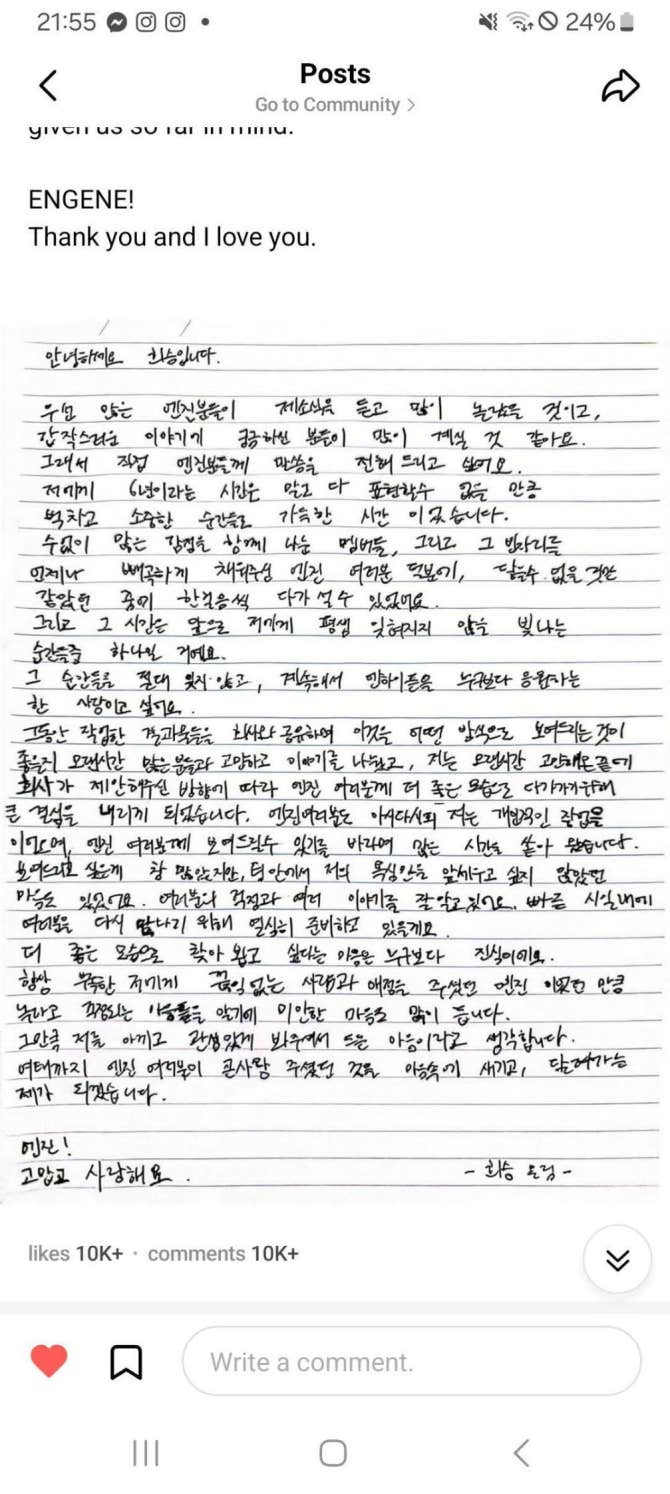 21:55
24%
Posts
Go to Community >
given us so far in mind.
ENGENE!
Thank you and I love you.
안녕하세요 희승입니다.
우선 많은 엔진분들이 제소식을 듣고 많이 놀랐을 것이고,
갑작스러운 이야기에 궁금하실 분들이 많이 계실 것 같아요.
그래서 직접 엔진분들께 말씀을 전해 드리고 싶어요.
저에게 6년이라는 시간은 말로 다 표현할수 없을 만큼
벅차고 소중한 순간들로 가득한 시간 이었습니다.
수없이 많은 감정을 함께 나눈 멤버들, 그리고 그 빈자리를
언제나 빼곡하게 채워주신 엔진 여러분 덕분에, 닿을수 없을 것만
같았던 꿈에 한걸음씩 다가 설수 있었어요.
그리고 그 시간은 앞으로 저에게 평생 잊혀지지 않을 빛나는
순간들중 하나일 거예요.
그 순간들을 절대 잊지 않고, 계속해서 엔하이픈을 누구보다 응원하는
한 사람이고 싶어요.
그동안 작업한 결과물들을 회사와 공유하며 이것을 어떤 방식으로 보여드리는것이
좋을지 오랜시간 많은 분들과 고민하고 이야기를 나눴고, 저는 오랜시간 고민해온끝에
회사가 제안해주신 방향에 따라 엔진 여러분께 더 좋은 모습으로 다가가기위해
큰 결심을 내리게 되었습니다. 엔진여러분도 아시다시피 저는 개인적인 작업을
이어오며, 엔진 여러분께 보여드릴수 있기를 바라며 많은 시간을 쏟아 왔습니다.
보여드리고 싶은게 참 많았지만, 팀 안에서 저의 욕심만을 앞세우고 싶지 않았던
마음도 있었어요. 여러분의 걱정과 여러 이야기를 잘 알고있어요. 빠른 시일내에
여러분을 다시 만나기 위해 열심히 준비하고 있을게요.
더 좋은 모습으로 찾아 뵙고 싶다는 마음은 누구보다 진심이에요.
항상 부족한 저에게 끊임 없는 사랑과 애정을 주셨던 엔진 이었던 만큼
놀라고 걱정되는 마음들을 알기에 미안한 마음도 많이 듭니다.
그만큼 저를 아끼고 관심있게 봐주셔서 드는 마음이라고 생각합니다.
여태까지 엔진 여러분이 큰사랑 주셨던 것을 마음속에 새기고, 달려가는
제가 되겠습니다.
엔진!
고맙고 사랑해요.
- 희승 드림 -
likes 10K+ · comments 10K+
Write a comment.